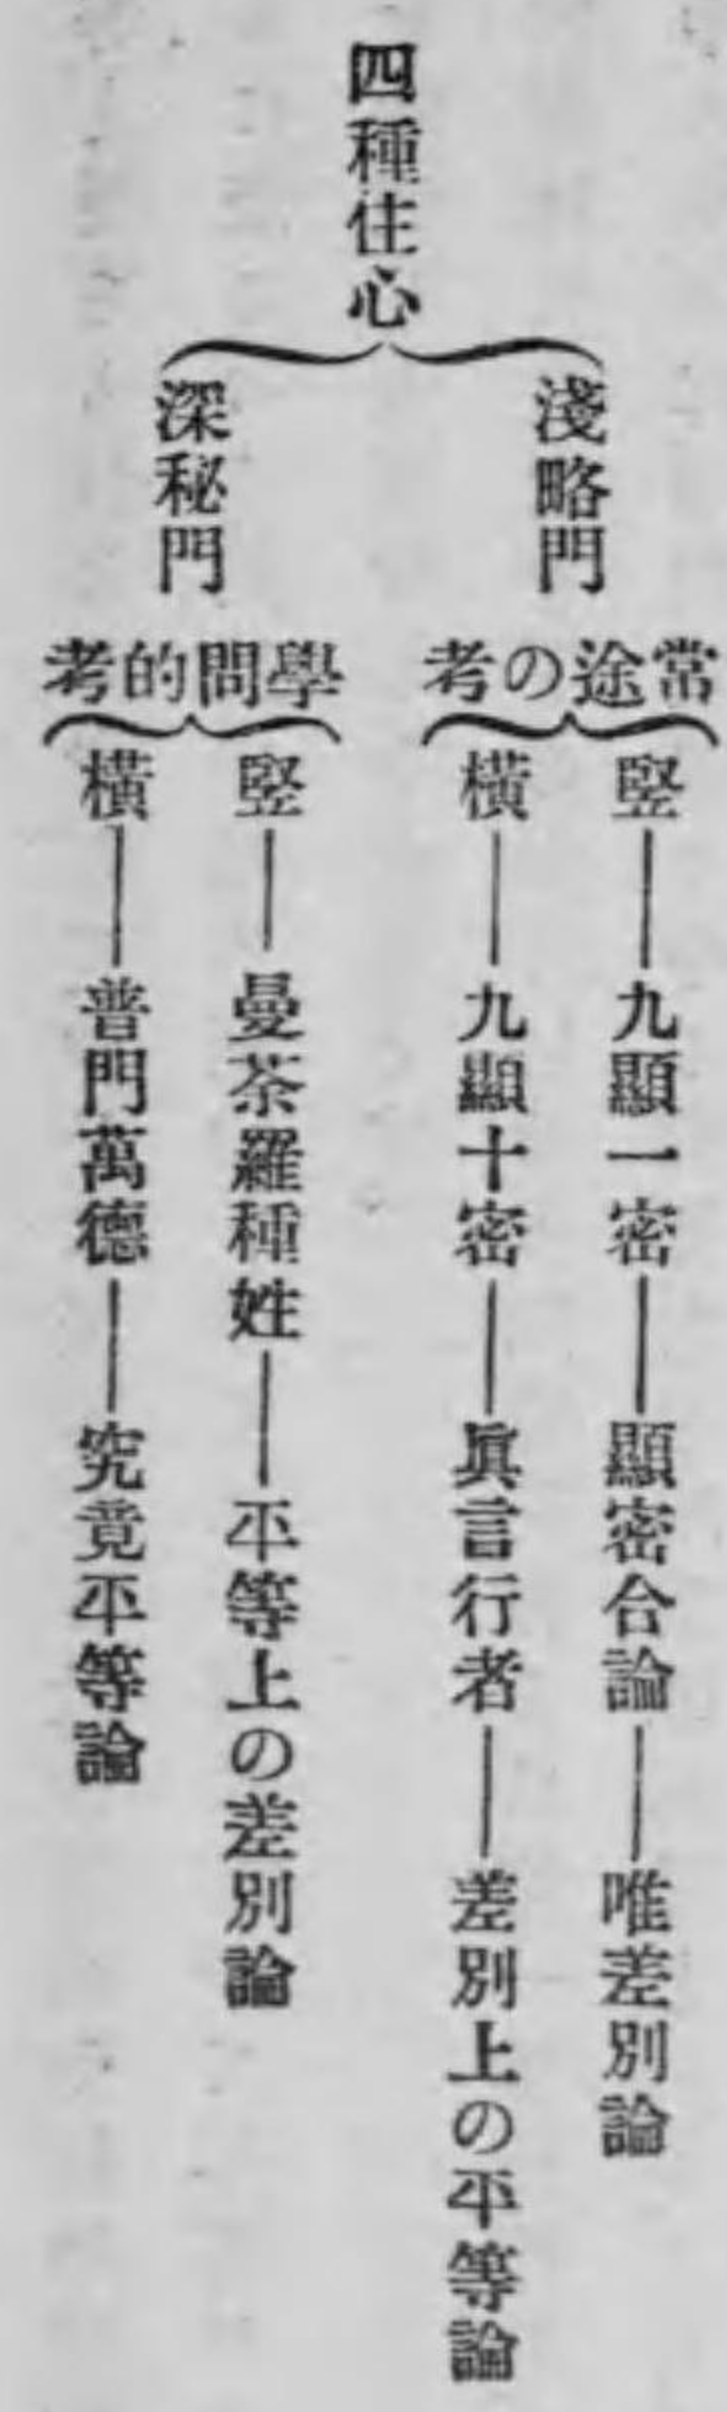 四種住心
淺略門
常途の考
竪――九顯一密――顯密合論――唯差別論
橫――九顯十密――眞言行者――差別上の平等論
深秘門
學問的考
竪――曼荼羅種姓――平等上の差別論
橫――普門萬德――究竟平等論